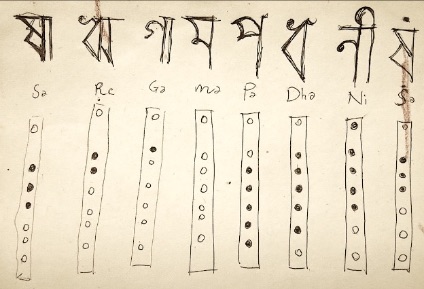 ষা ঋ গা ম প ধ নী র্ষং
Sa Re Ga ma Pa Dha Ni Sa